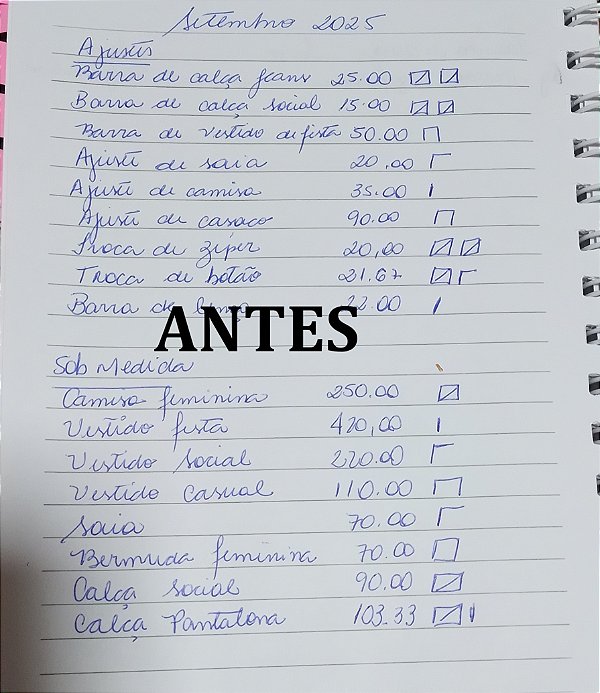 Setembro 2025
Ajustes
Barra de calça jeans 25.00
Barra de calça social 15.00
Barra de vestido de festa 50.00
Ajuste de saia 20,00
Ajuste de camisa 35.00
Ajuste de casaco 90.00
Troca de ziper 20,00
Troca de botão 21.67
Barra de 22.00
ANTES
Sob Medida
Camisa feminina 250.00
Vestido festa 420,00
Vestido social 220.00
Vestido Casual 110.00
Saia 70.00
Bermuda feminina 70.00
Calça social 90.00
Calça Pantalona 103.33